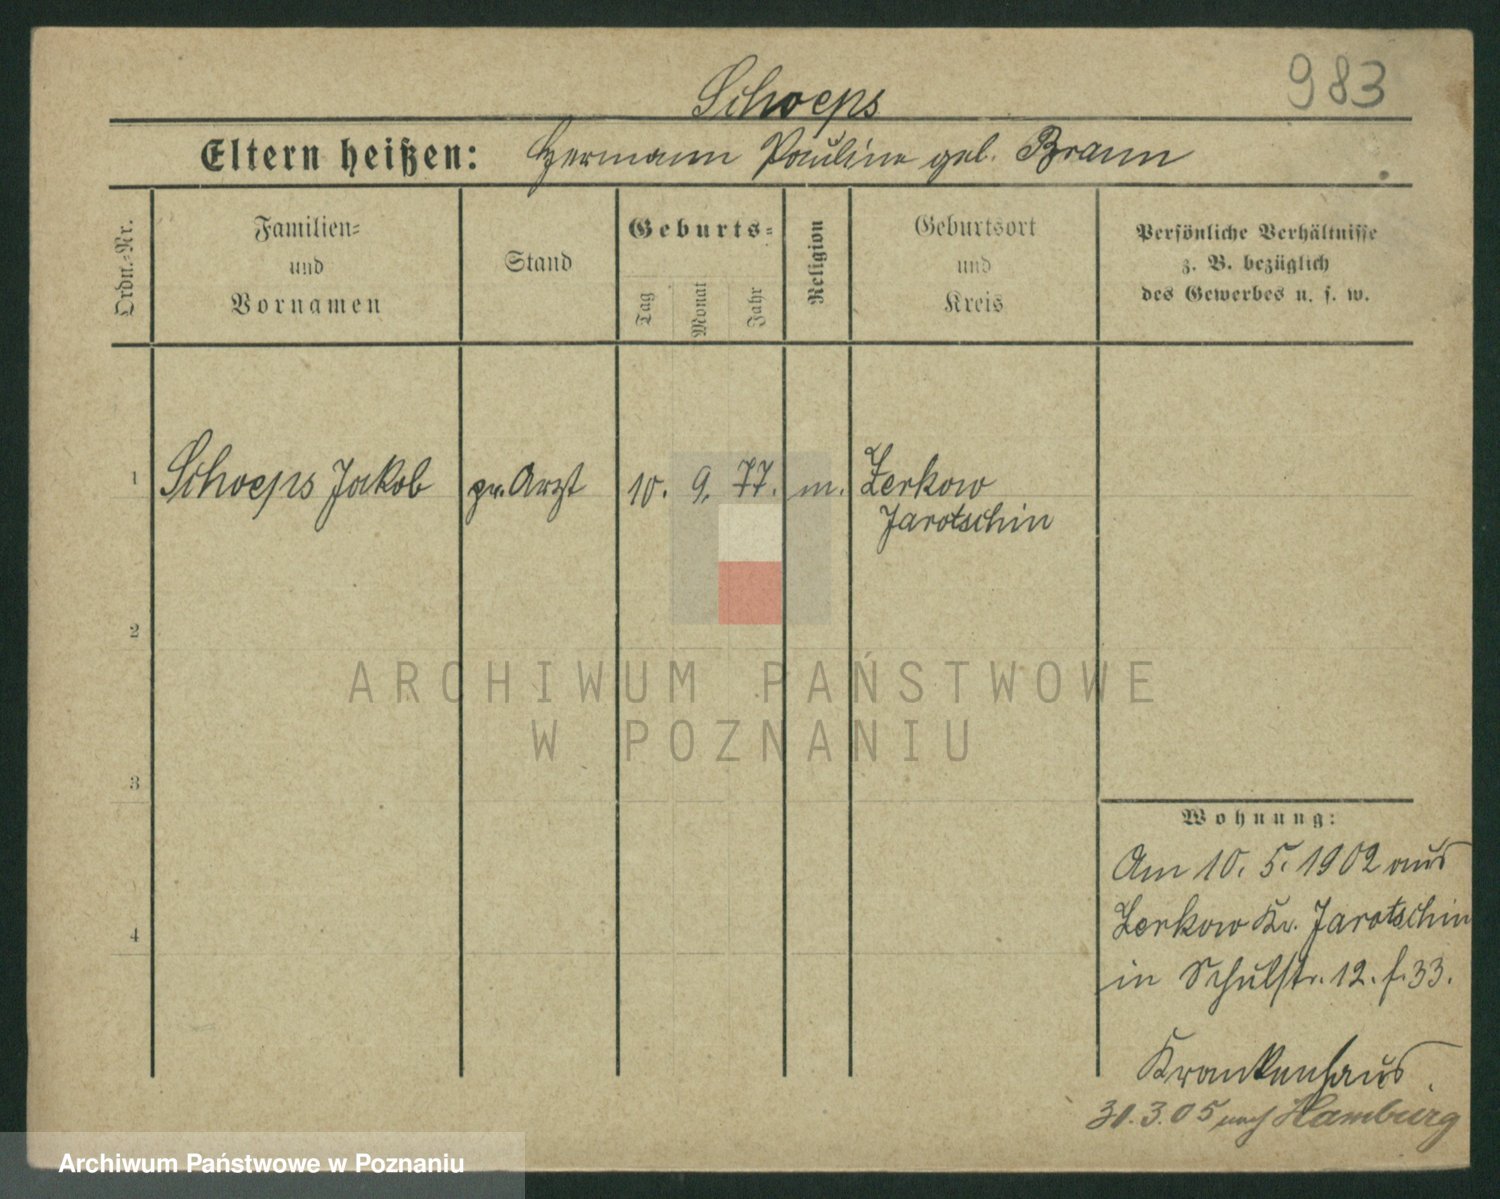 983
Schoeps
Eltern heißen: Hermann Pauline geb. Braun
Ordn.-Nr.
Familien-
und
Vornamen
Stand
Geburts-
Tag
Monat
Jahr
Religion
Geburtsort
und
Kreis
Persönliche Verhältnisse
z. B. bezüglich
des Gewerbes u. s. w.
1 Schoeps Jakob pr. Arzt 10. 9. 77. m. Zerkow
Jarotschin
2
ARCHIWUM PAŃSTWOWE
W POZNANIU
3
Wohnung:
Am 10. 5. 1902 aus
Zerkow Kr. Jarotschin
4
in Schulstr. 12. f. 33.
Krankenhaus
30.3.05 nach Hamburg
Archiwum Państwowe w Poznaniu